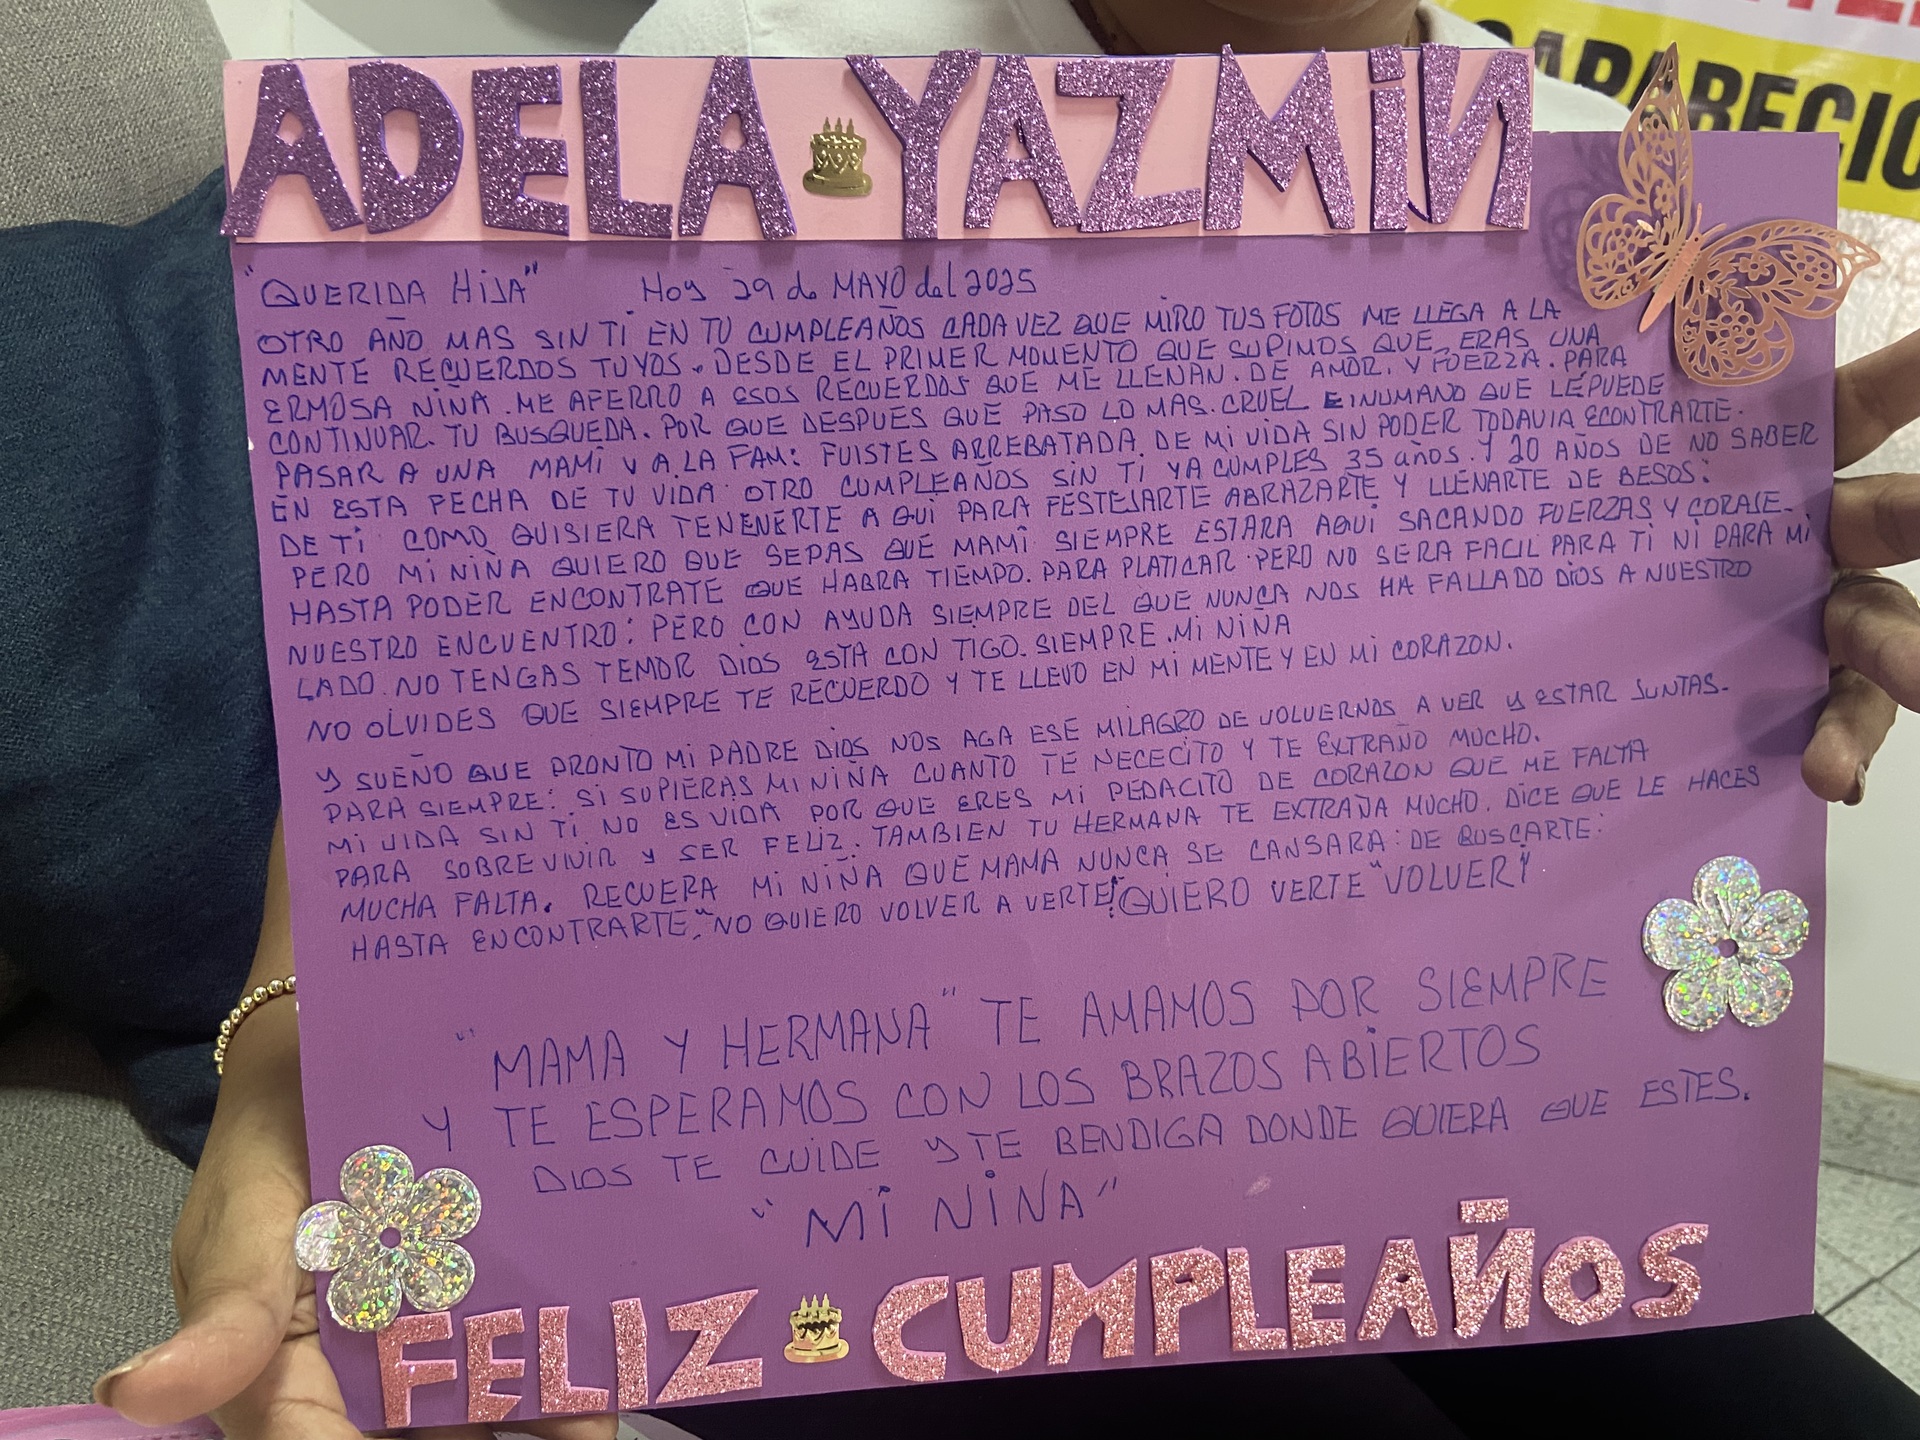 ADELA YAZMIN
"QUERIDA HIJA" Hoy 29 de MAYO del 2025
OTRO AÑO MAS SIN TI EN TU CUMPLEAÑOS CADA VEZ QUE MIRO TUS FOTOS ME LLEGA A LA
MENTE RECUERDOS TUYOS. DESDE EL PRIMER MOMENTO QUE SUPIMOS QUE ERAS UNA
ERMOSA NIÑA. ME AFERRO A ESOS RECUERDOS QUE ME LLENAN. DE AMOR. Y FUERZA. PARA
CONTINUAR. TU BUSQUEDA. POR QUE DESPUES QUE PASO LO MAS. CRUEL E INUMANO QUE LE PUEDE
PASAR A UNA MAMI Y A LA FAM: FUISTES ARREBATADA. DE MI VIDA SIN PODER TODAVIA ECONTRARTE.
EN ESTA FECHA DE TU VIDA OTRO CUMPLEAÑOS SIN TI YA CUMPLES 35 años. Y 20 AÑOS DE NO SABER
DE TI COMO QUISIERA TENENERTE A QUI PARA FESTEJARTE ABRAZARTE Y LLENARTE DE BESOS:
PERO MI NIÑA QUIERO QUE SEPAS QUE MAMI SIEMPRE ESTARA AQUI SACANDO FUERZAS Y CORAJE.
HASTA PODER ENCONTRATE QUE HABRA TIEMPO. PARA PLATICAR PERO NO SERA FACIL PARA TI NI PARA MI
NUESTRO ENCUENTRO: PERO CON AYUDA SIEMPRE DEL QUE NUNCA NOS HA FALLADO DIOS A NUESTRO
LADO. NO TENGAS TEMOR DIOS ESTA CON TIGO. SIEMPRE. MI NIÑA
NO OLVIDES QUE SIEMPRE TE RECUERDO Y TE LLEVO EN MI MENTE Y EN MI CORAZON.
Y SUEÑO QUE PRONTO MI PADRE DIOS NOS AGA ESE MILAGRO DE VOLVERNOS A VER Y ESTAR JUNTAS.
PARA SIEMPRE: SI SUPIERAS MI NIÑA CUANTO TE NECECITO Y TE EXTRAÑO MUCHO.
MI VIDA SIN TI NO ES VIDA POR QUE ERES MI PEDACITO DE CORAZON QUE ME FALTA
PARA SOBREVIVIR Y SER FELIZ. TAMBIEN TU HERMANA TE EXTRAÑA MUCHO. DICE QUE LE HACES
MUCHA FALTA. RECUERA MI NIÑA QUE MAMA NUNCA SE CANSARA: DE BUSCARTE:
HASTA ENCONTRARTE. "NO QUIERO VOLVER A VERTE! QUIERO VERTE "VOLVER"
"MAMA Y HERMANA" TE AMAMOS POR SIEMPRE
Y TE ESPERAMOS CON LOS BRAZOS ABIERTOS
DIOS TE CUIDE Y TE BENDIGA DONDE QUIERA QUE ESTES.
"MI NIÑA"
FELIZ CUMPLEAÑOS